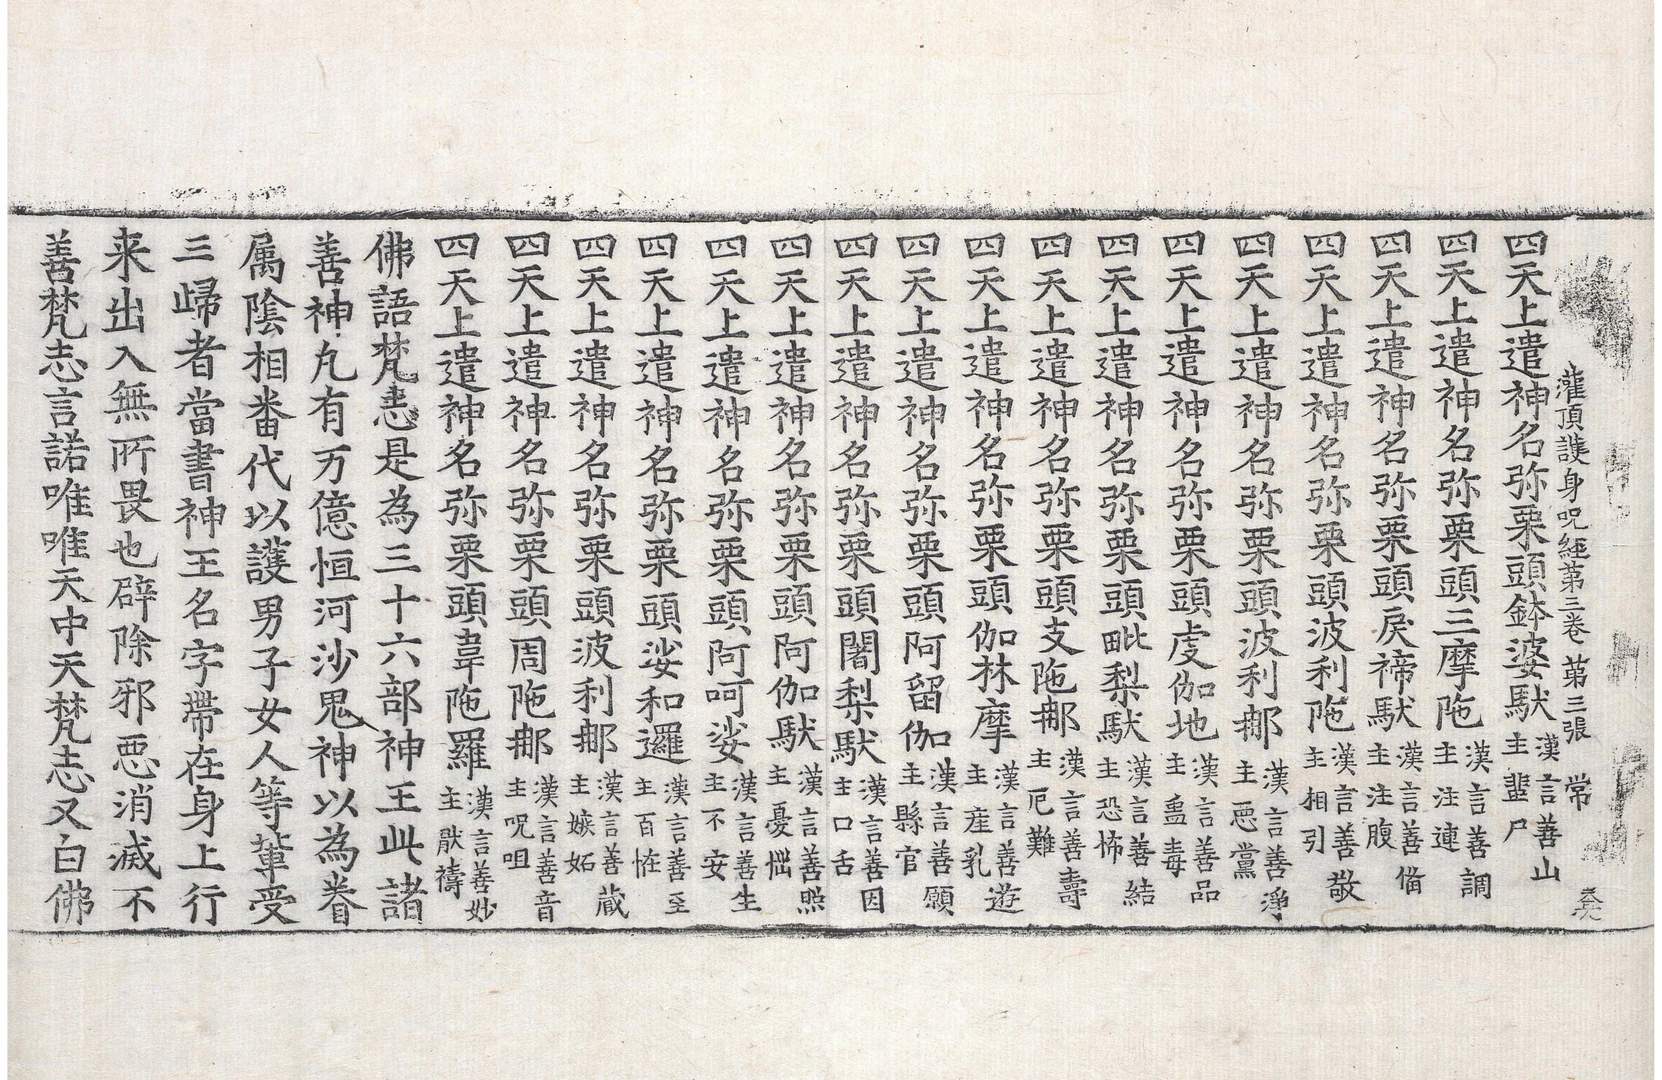 灌頂護身呪經第三卷 第三張 常
四天上遣神名弥栗頭鉢婆馱 漢言善山主蜚尸
四天上遣神名弥栗頭三摩陁 漢言善調主注連
四天上遣神名弥栗頭戾禘馱 漢言善俻主注腹
四天上遣神名弥栗頭波利陁 漢言善敬主相引
四天上遣神名弥栗頭波利那 漢言善淨主惡黨
四天上遣神名弥栗頭虔伽地 漢言善品主蛊毒
四天上遣神名弥栗頭毗梨馱 漢言善結主恐怖
四天上遣神名弥栗頭支陁那 漢言善壽主厄難
四天上遣神名弥栗頭伽林摩 漢言善遊主產乳
四天上遣神名弥栗頭阿留伽 漢言善願主縣官
四天上遣神名弥栗頭闍梨馱 漢言善因主口舌
四天上遣神名弥栗頭阿伽馱 漢言善照主憂惱
四天上遣神名弥栗頭阿呵娑 漢言善生主不安
四天上遣神名弥栗頭娑和邏 漢言善至主百怪
四天上遣神名弥栗頭波利那 漢言善藏主嫉妬
四天上遣神名弥栗頭周陁那 漢言善音主呪咀
四天上遣神名弥栗頭韋陁羅 漢言善妙主厭禱
佛語梵志是為三十六部神王此諸
善神凢有万億恒河沙鬼神以為眷
属陰相番代以護男子女人等輩受
三歸者當書神王名字帶在身上行
来出入無所畏也辟除邪惡消滅不
善梵志言諾唯唯天中天梵志又白佛